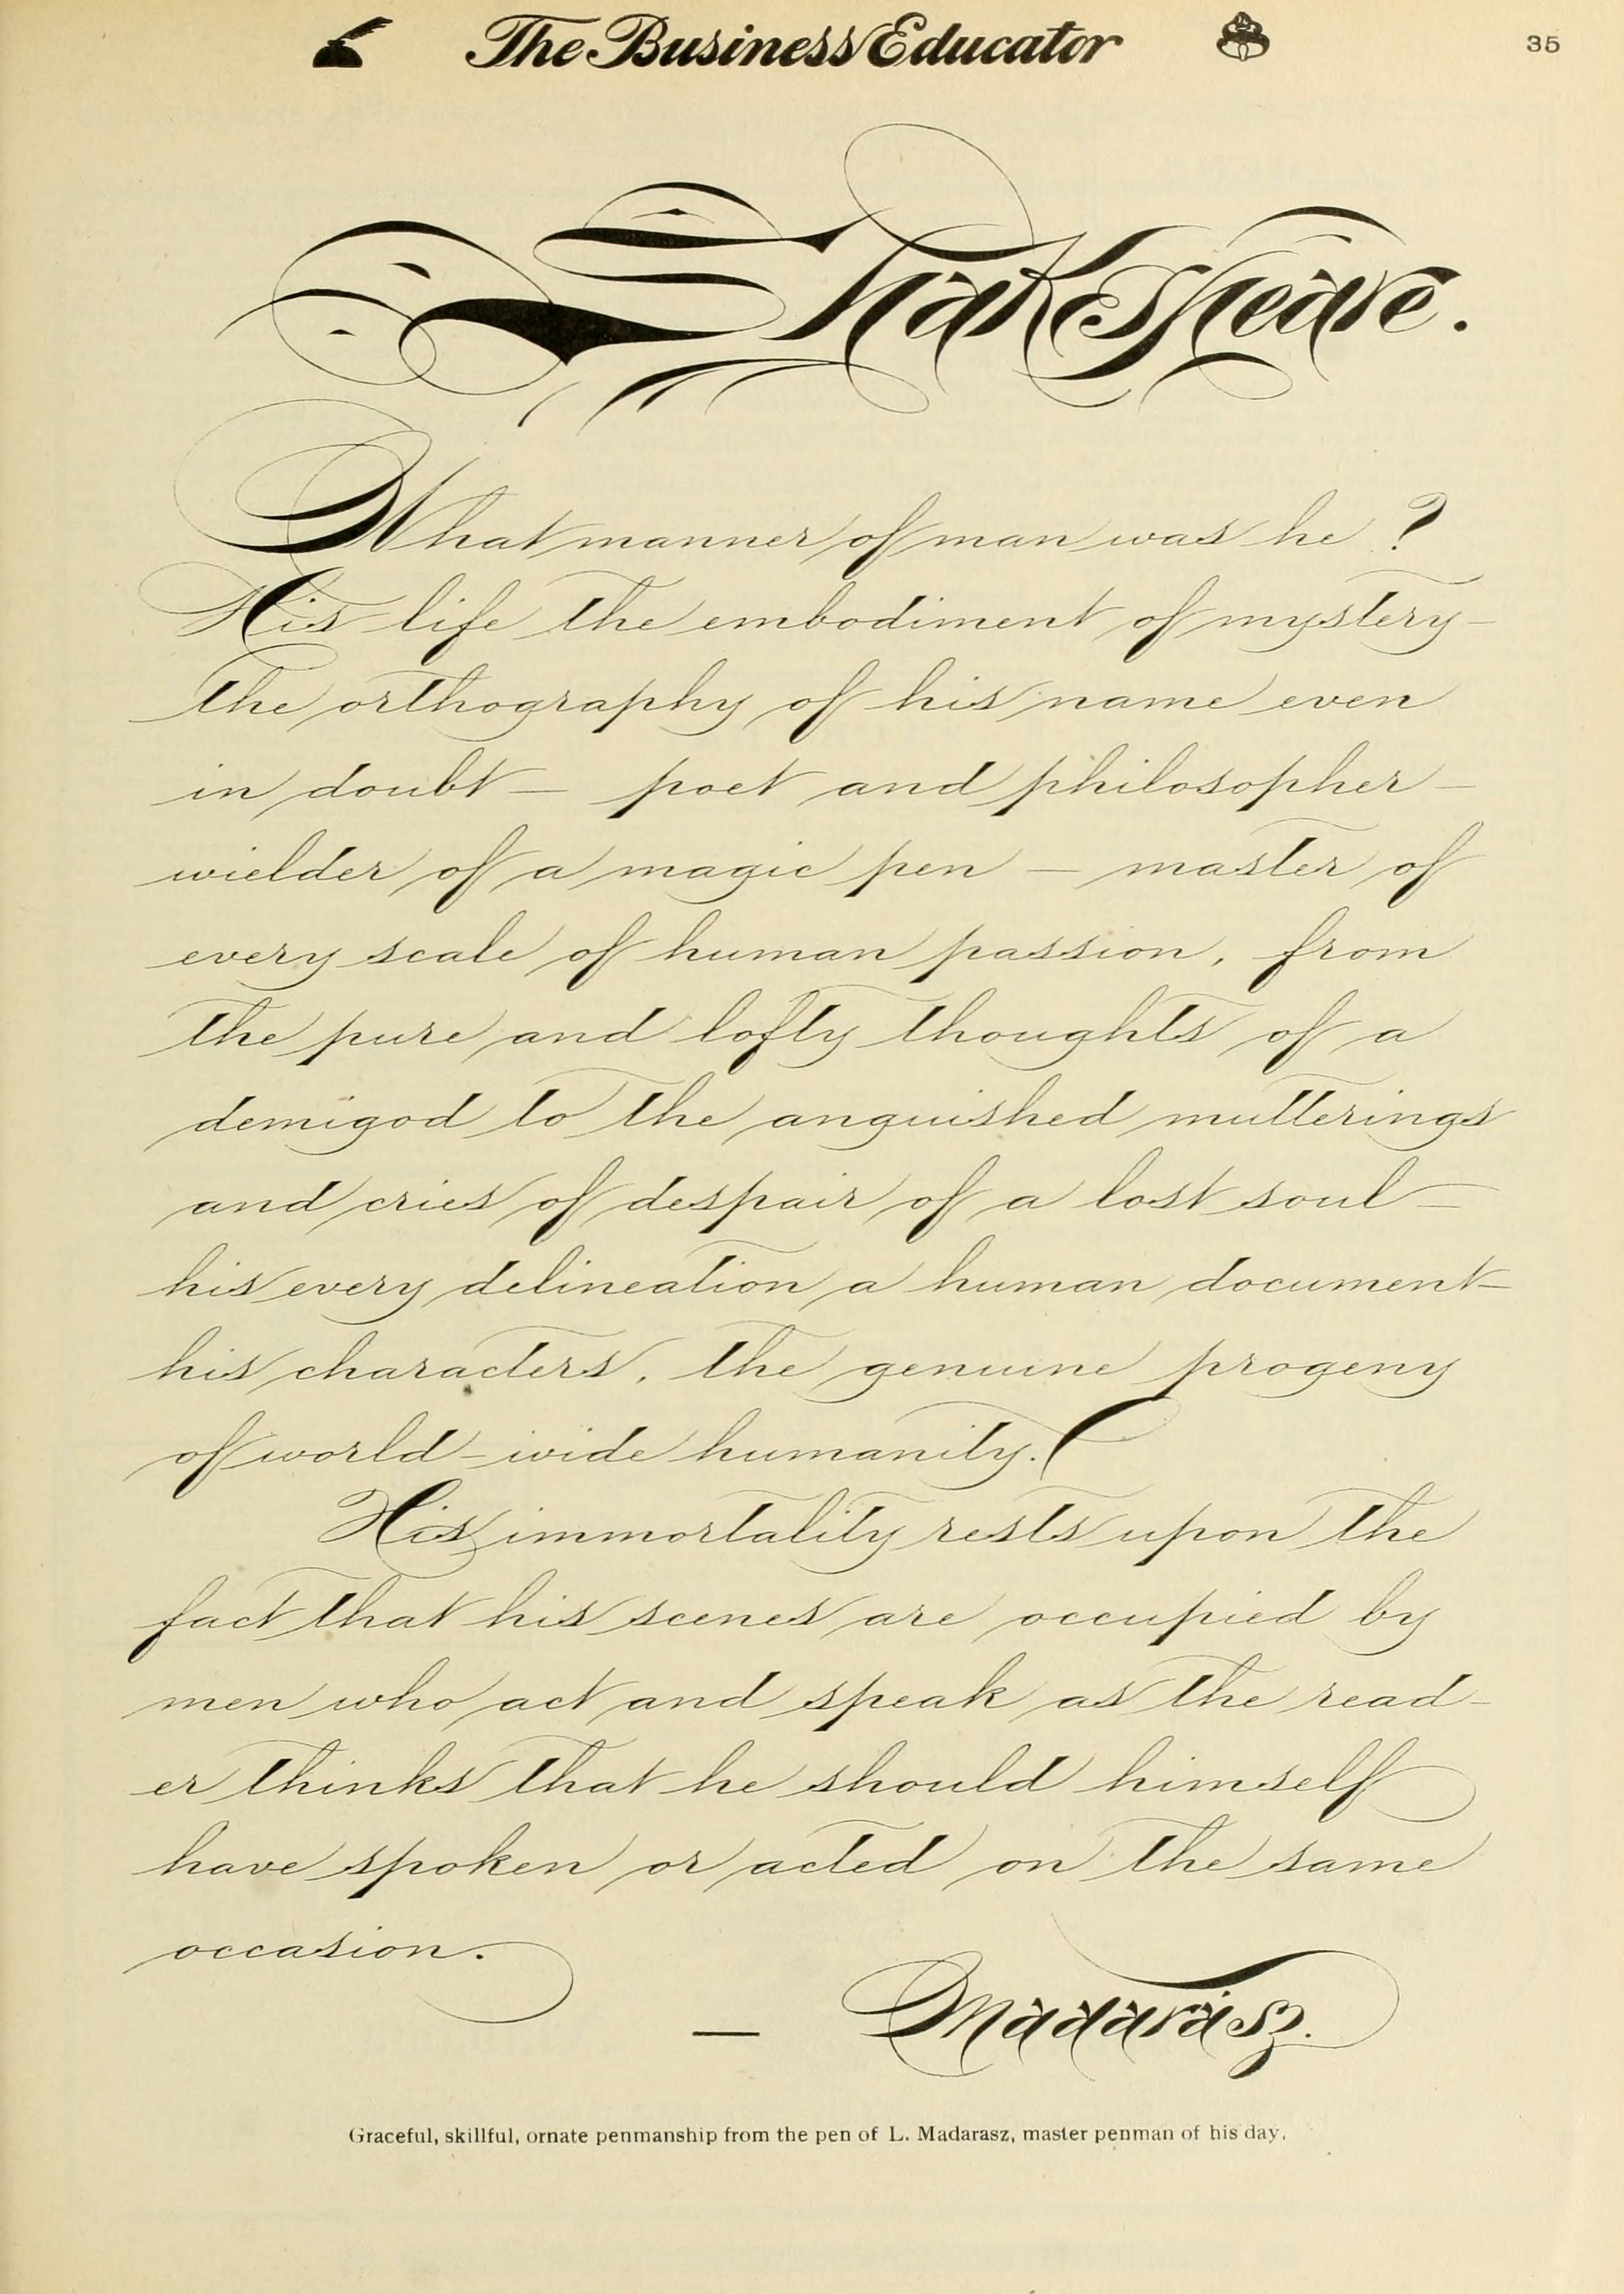 The Business Educator 35
Shakespeare.
What manner of man was he?
His life the embodiment of mystery—
the orthography of his name even
in doubt — poet and philosopher —
wielder of a magic pen — master of
every scale of human passion, from
the pure and lofty thoughts of a
demigod to the anguished mutterings
and cries of despair of a lost soul —
his every delineation a human document—
his characters, the genuine progeny
of world-wide humanity.
His immortality rests upon the
fact that his scenes are occupied by
men who act and speak as the read-
er thinks that he should himself
have spoken or acted on the same
occasion.
— Madarasz.
Graceful, skillful, ornate penmanship from the pen of L. Madarasz, master penman of his day.